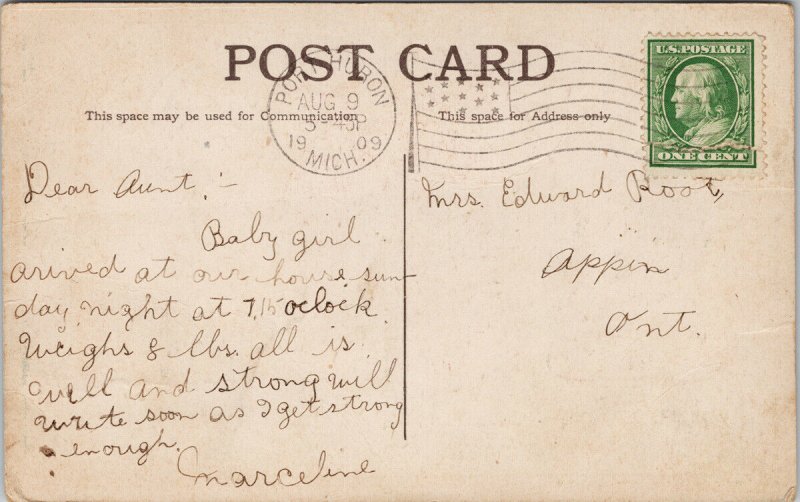 POST CARD
This space may be used for Communication
This space for Address only
PORT HURON
AUG 9
3-4 P
1909
MICH.
U.S. POSTAGE
ONE CENT
Dear Aunt:-
Baby girl
arived at our house sun-
day night at 7.15 oclock
Weighs 8 lbs. all is
well and strong will
write soon as I get strong
enough.
Marceline
Mrs. Edward Root,
Appin
Ont.